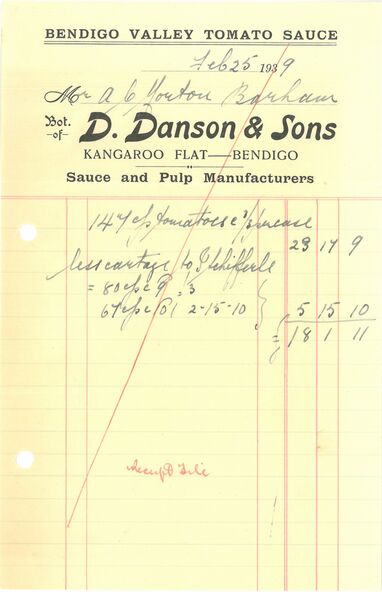 BENDIGO VALLEY TOMATO SAUCE
Feb 25 1939
Mr A C Morton Barham
Bot. -of- D. Danson & Sons
KANGAROO FLAT—BENDIGO
Sauce and Pulp Manufacturers
147 c/s tomatoes @ 3/3 per case
23 17 9
less cartage to J Schifferle
= 80 c/s @ 9 = 3
67 c/s @ 10 2-15-10
5 15 10
= 18 1 11